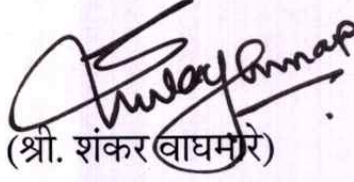 (श्री. शंकर वाघमारे)